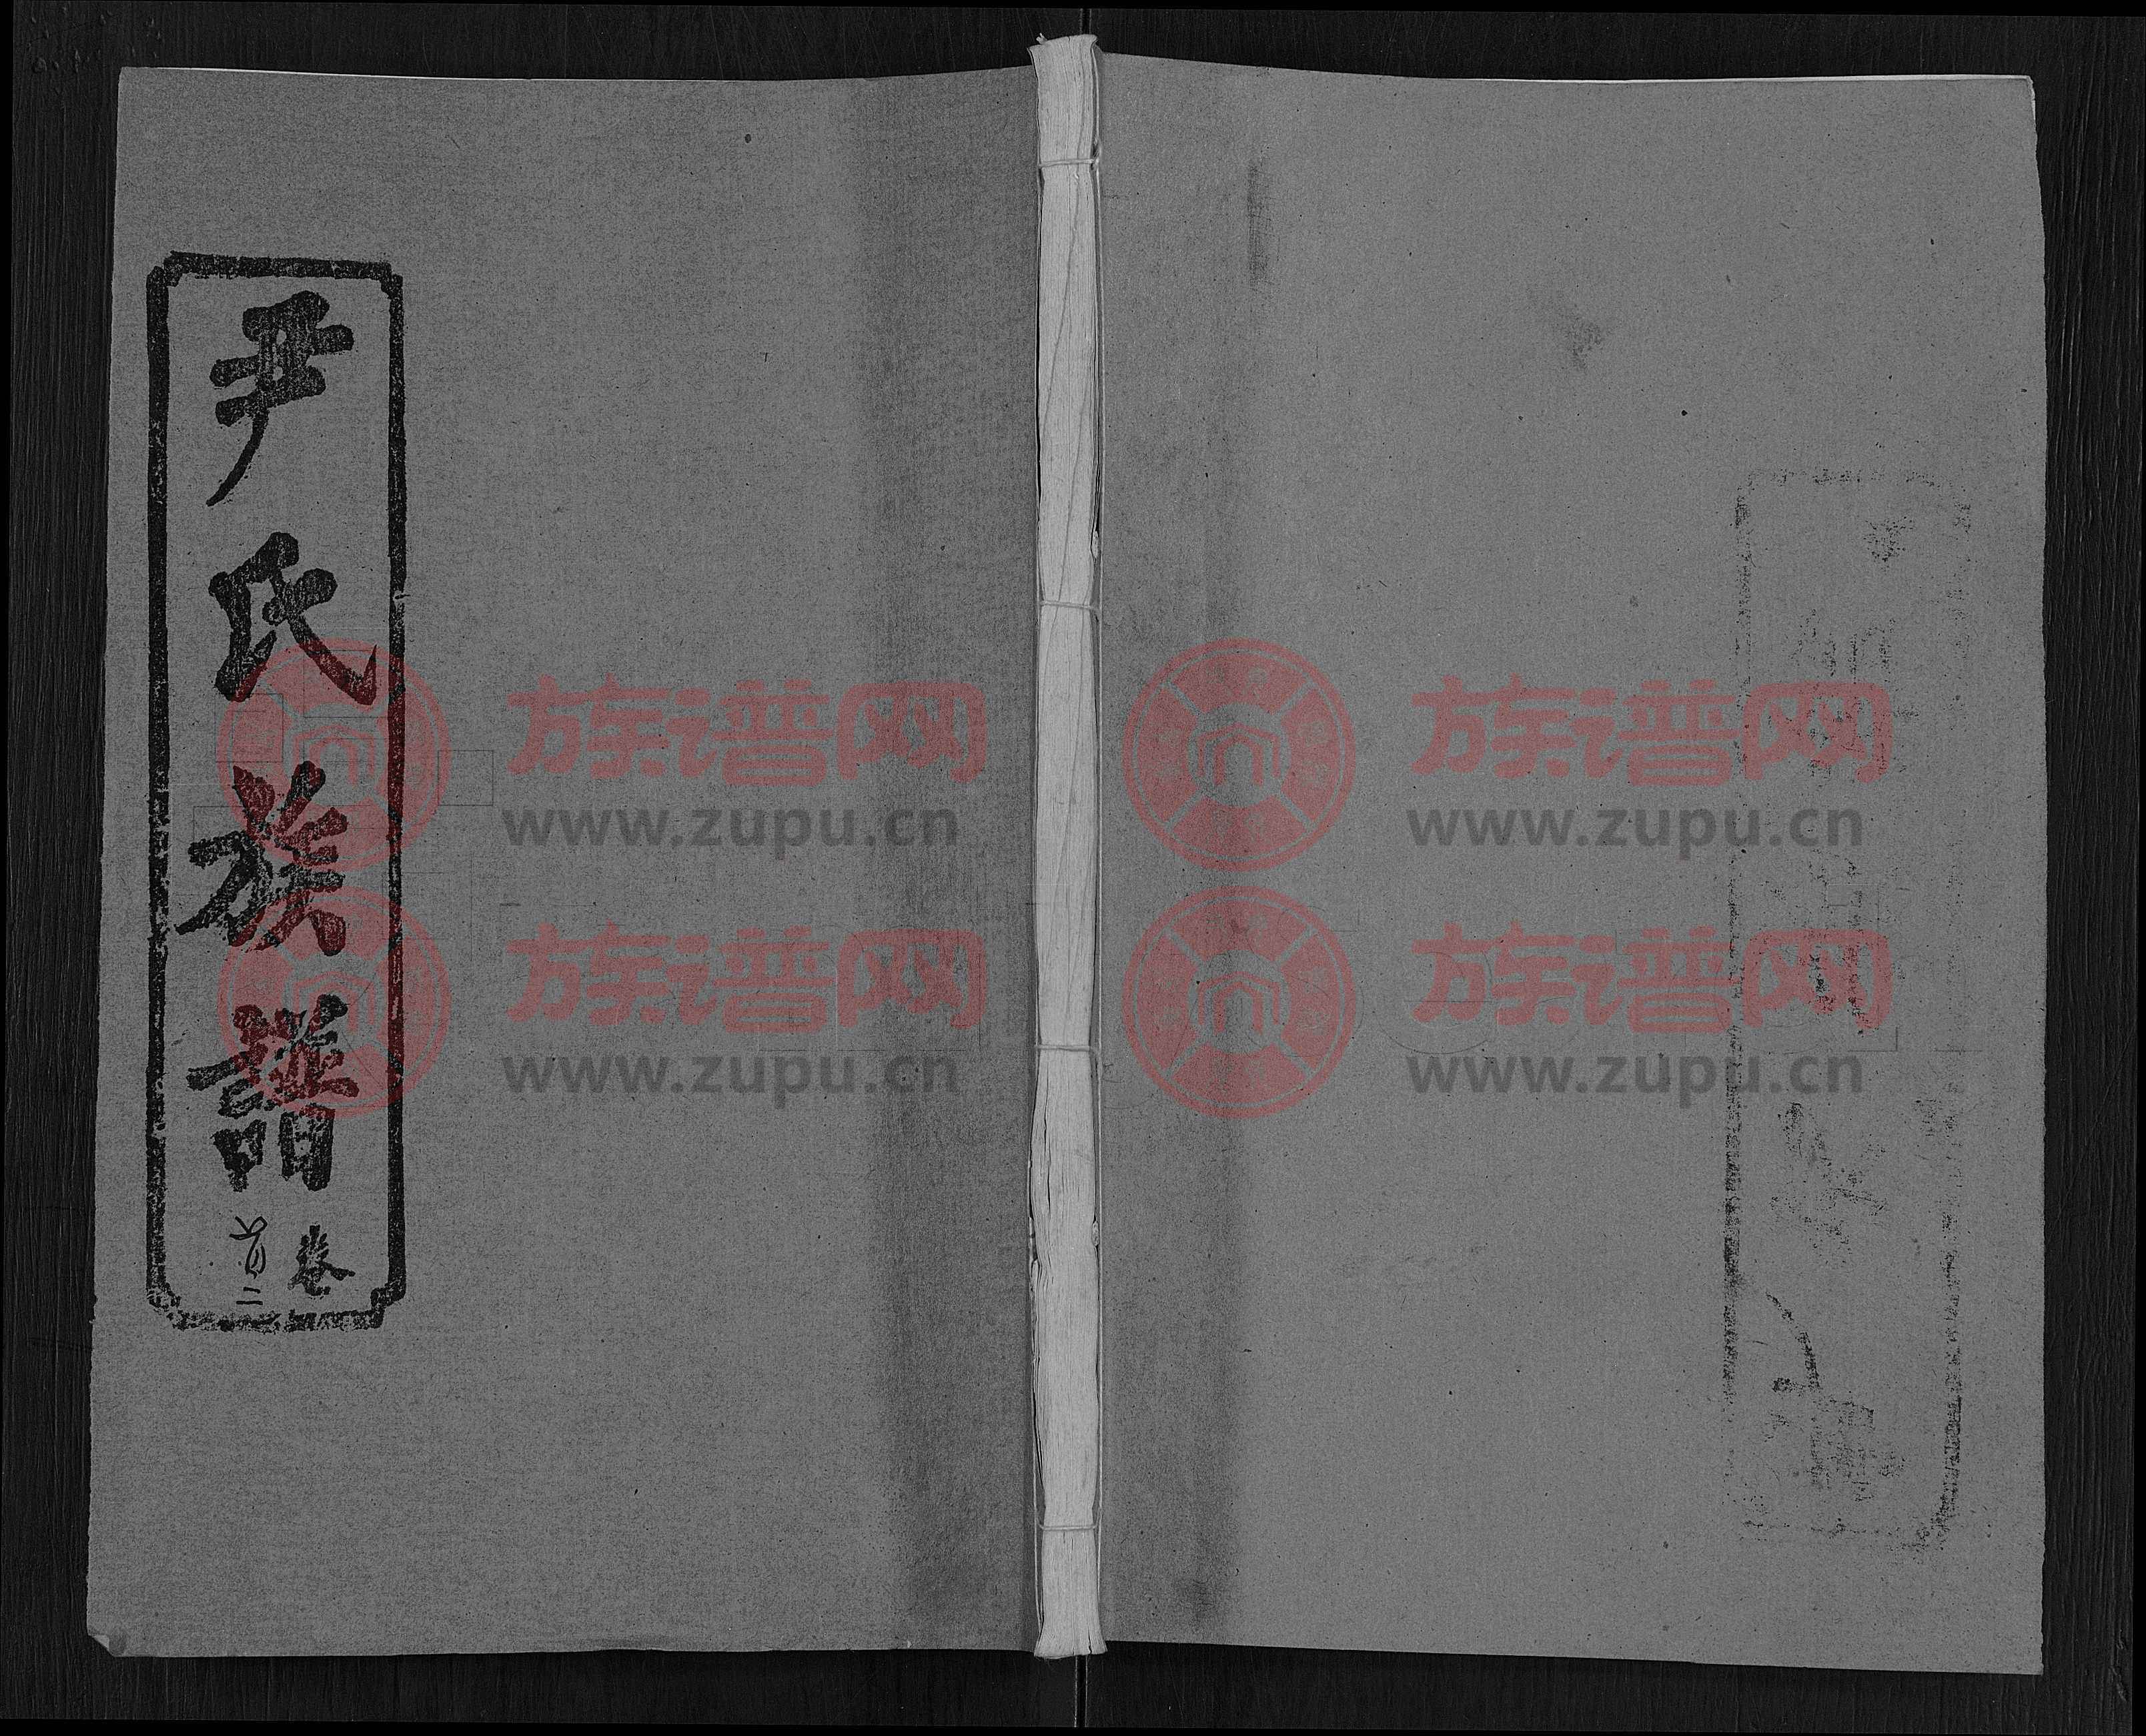 尹氏族譜
卷
首二
族谱网
www.zupu.cn
族谱网
www.zupu.cn
族谱网
www.zupu.cn
族谱网
www.zupu.cn